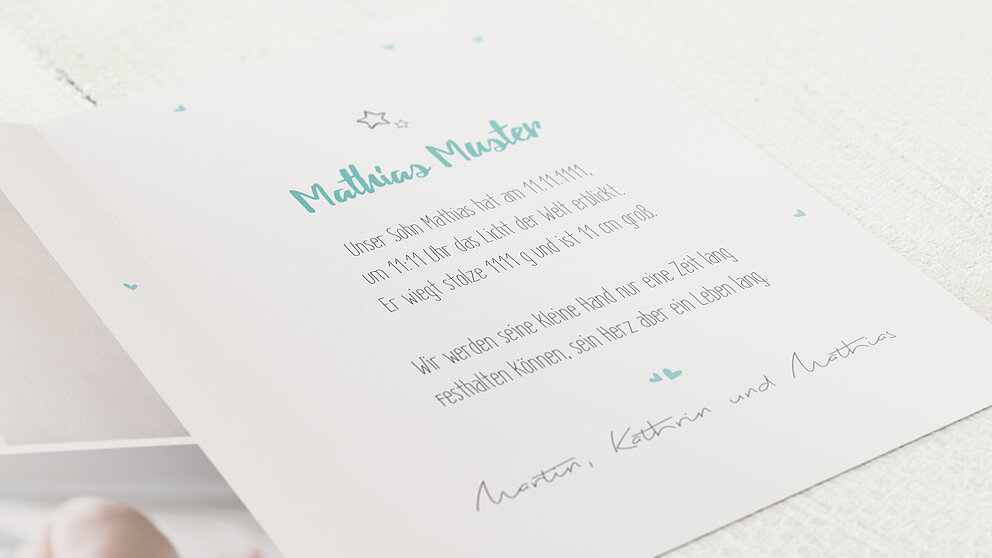 Mathias Muster
Unser Sohn Mathias hat am 11.11.1111,
um 11:11 Uhr das Licht der Welt erblickt.
Er wiegt stolze 1111 g und ist 11 cm groß.
Wir werden seine kleine Hand nur eine Zeit lang
festhalten können, sein Herz aber ein Leben lang.
Martin, Kathrin und Mathias